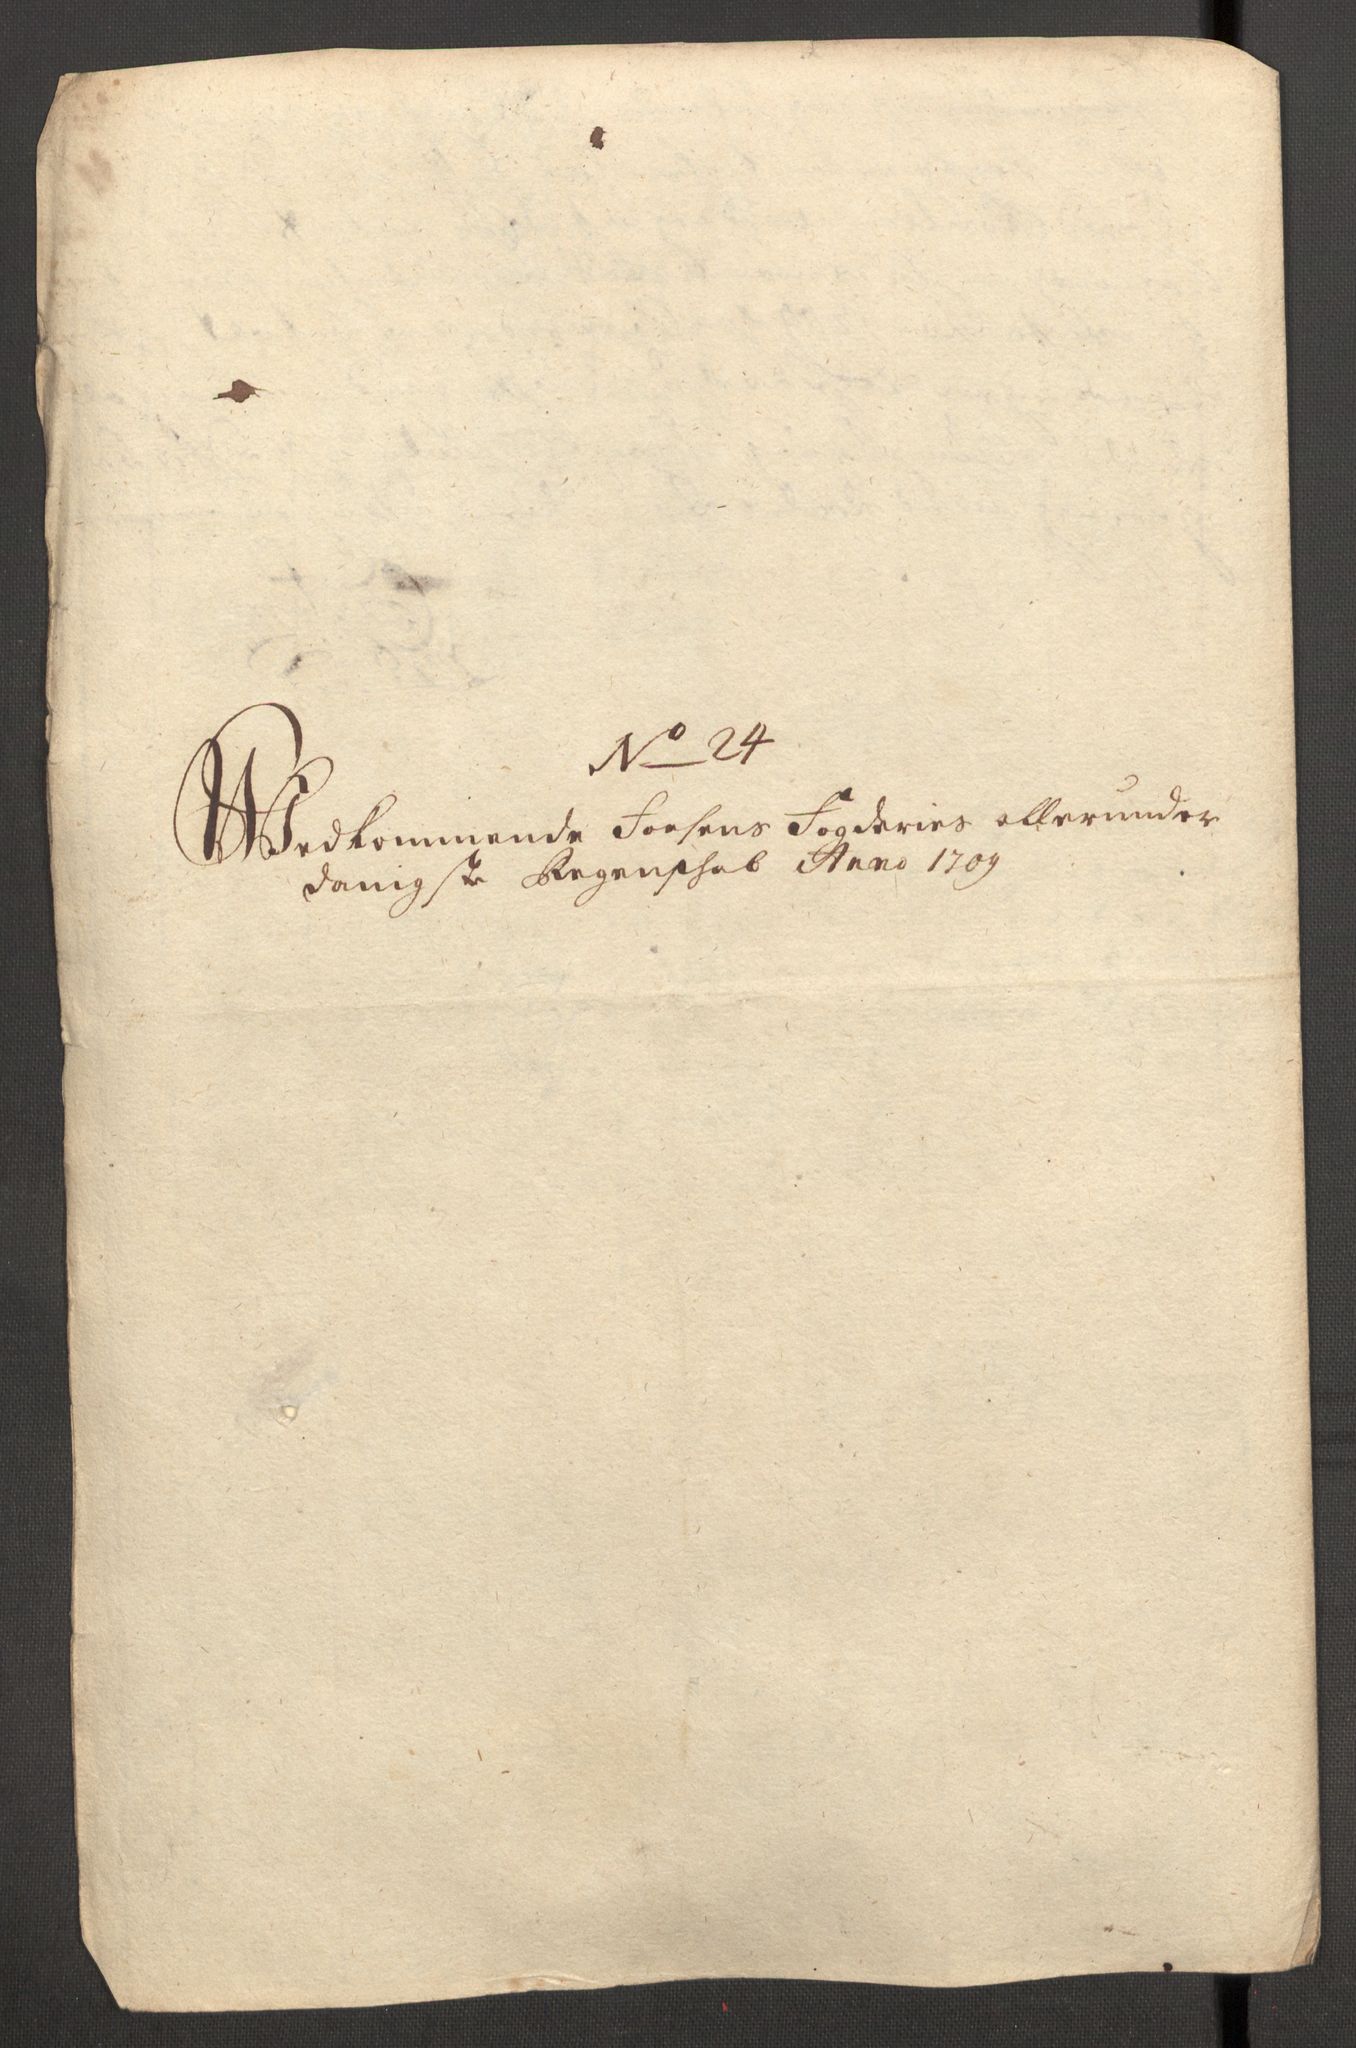 No 24
Wedkommende Foesens Fogderies allerunder
danigste Regenschab Anno 1709